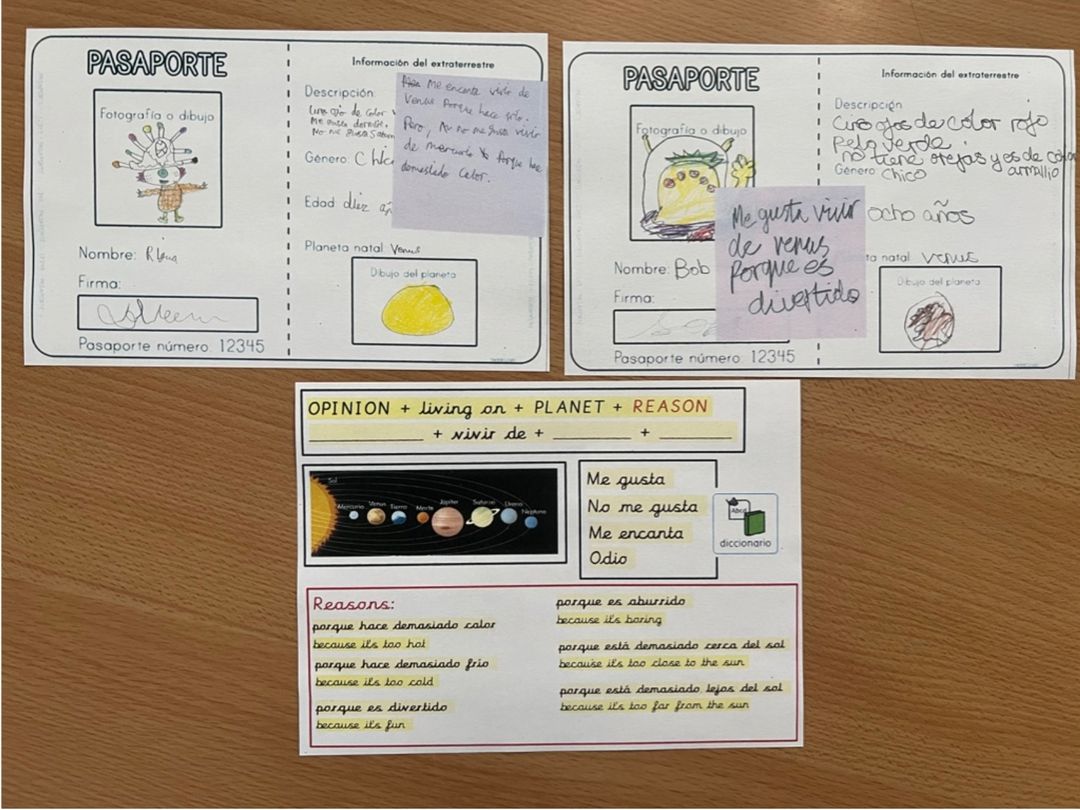 PASAPORTE
Fotografía o dibujo
Nombre:
Firma:
Pasaporte número: 12345
Información del extraterrestre
Descripción:
ojo de color
Género: Chic
Edad: diez añ
Planeta natal: Venus
Dibujo del planeta
Me encanta vivir de
Venus porque hace
Pero, no me gusta vivir
de mercurio porque hace
demasiado calor.
PASAPORTE
Fotografía o dibujo
Nombre: Bob
Firma:
Pasaporte número: 12345
Información del extraterrestre
Descripción
ojos de color rojo
Pelo verde.
no tiene orejas y es de
Género: chico
ocho años
ta natal: venus
Dibujo del planeta
Me gusta vivir
de venus
porque es
divertido
OPINION + living on + PLANET + REASON
+ vivir de + +
Sol
Mercurio Venus Tierra Marte Júpiter Saturno Urano Neptuno
Me gusta
No me gusta
Me encanta
Odio
Abcd
diccionario
Reasons:
porque hace demasiado calor
because it's too hot
porque hace demasiado frío
because it's too cold
porque es divertido
because it's fun
porque es aburrido
because it's boring
porque está demasiado cerca del sol
because it's too close to the sun
porque está demasiado lejos del sol
because it's too far from the sun